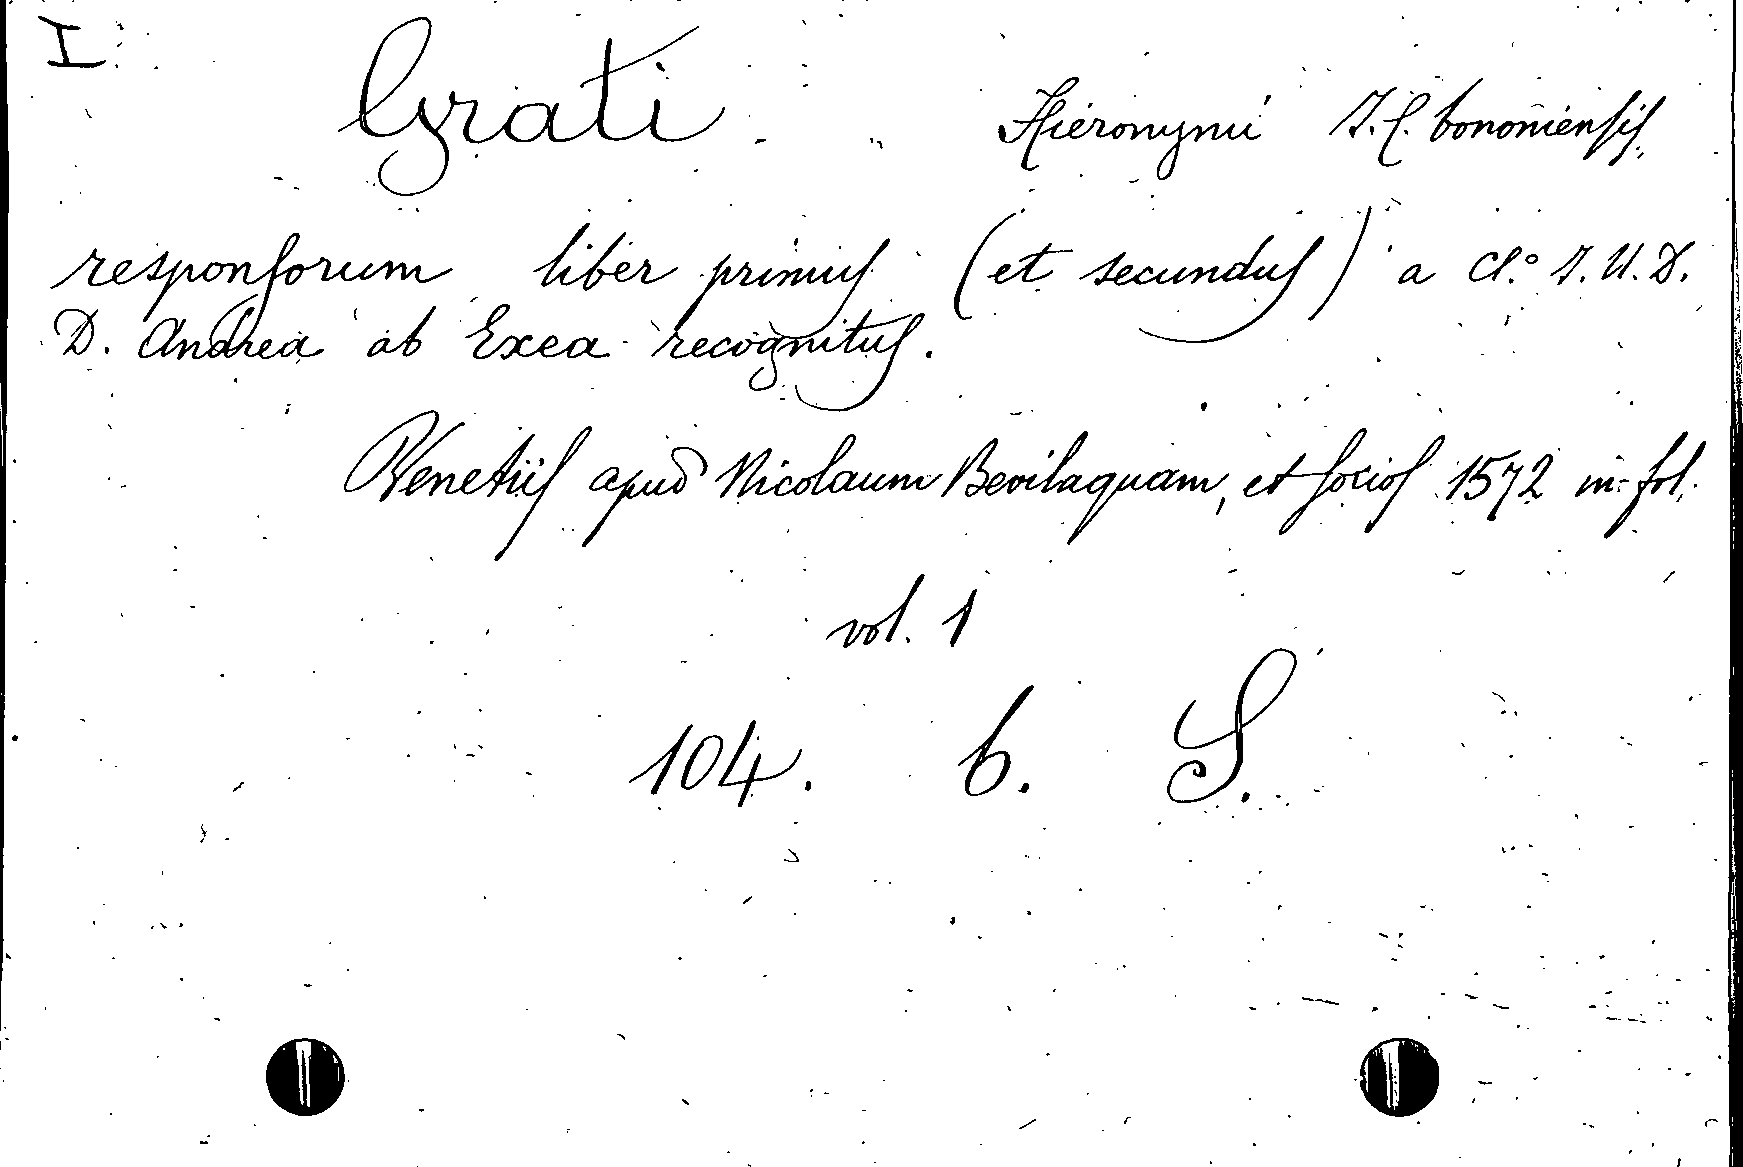 I
Grati Hieronymi J. C. bononiensis
responsorum liber primus (et secundus) a Cl.° J. U. D.
D. Andrea ab Exea recognitus.
Venetiis apud Nicolaum Bevilaquam, et socios 1572 in-fol.
vol. 1
104. b. S.